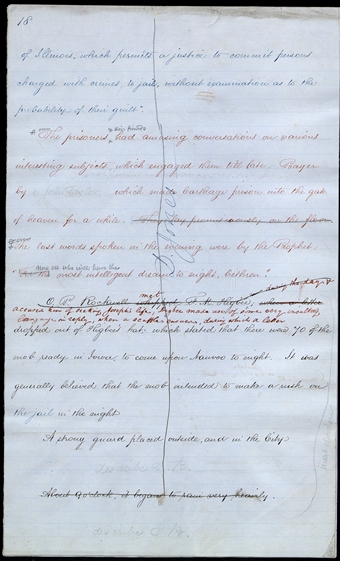 18
of Illinois, which permits a justice to commit persons
charged with crimes, to jail, without examination as to the
probability of their guilt".
The prisoners had amusing conversations on various
interesting subjects, which engaged them till late. Prayer
by John Taylor, which made Carthage prison into the gate
of heaven for a while. They lay promiscuously on the floor
The last words spoken in the evening were by the Prophet.
"most intelligent dreams to night, brethren."
O. P. Rockwell met F. M. Higbee, during the day &
accuses him of seeking Joseph's life, Higbee made use of some very insulting
language in reply, when a scuffle ensued, during which a letter
dropped out of Higbee's hat, which stated that there were 70 of the
mob ready in Iowa, to come upon Nauvoo to night. It was
generally believed that the mob intended to make a rush on
the jail in the night
A strong guard placed outside, and in the City
About 9 o'clock, it began to rain very heavily.